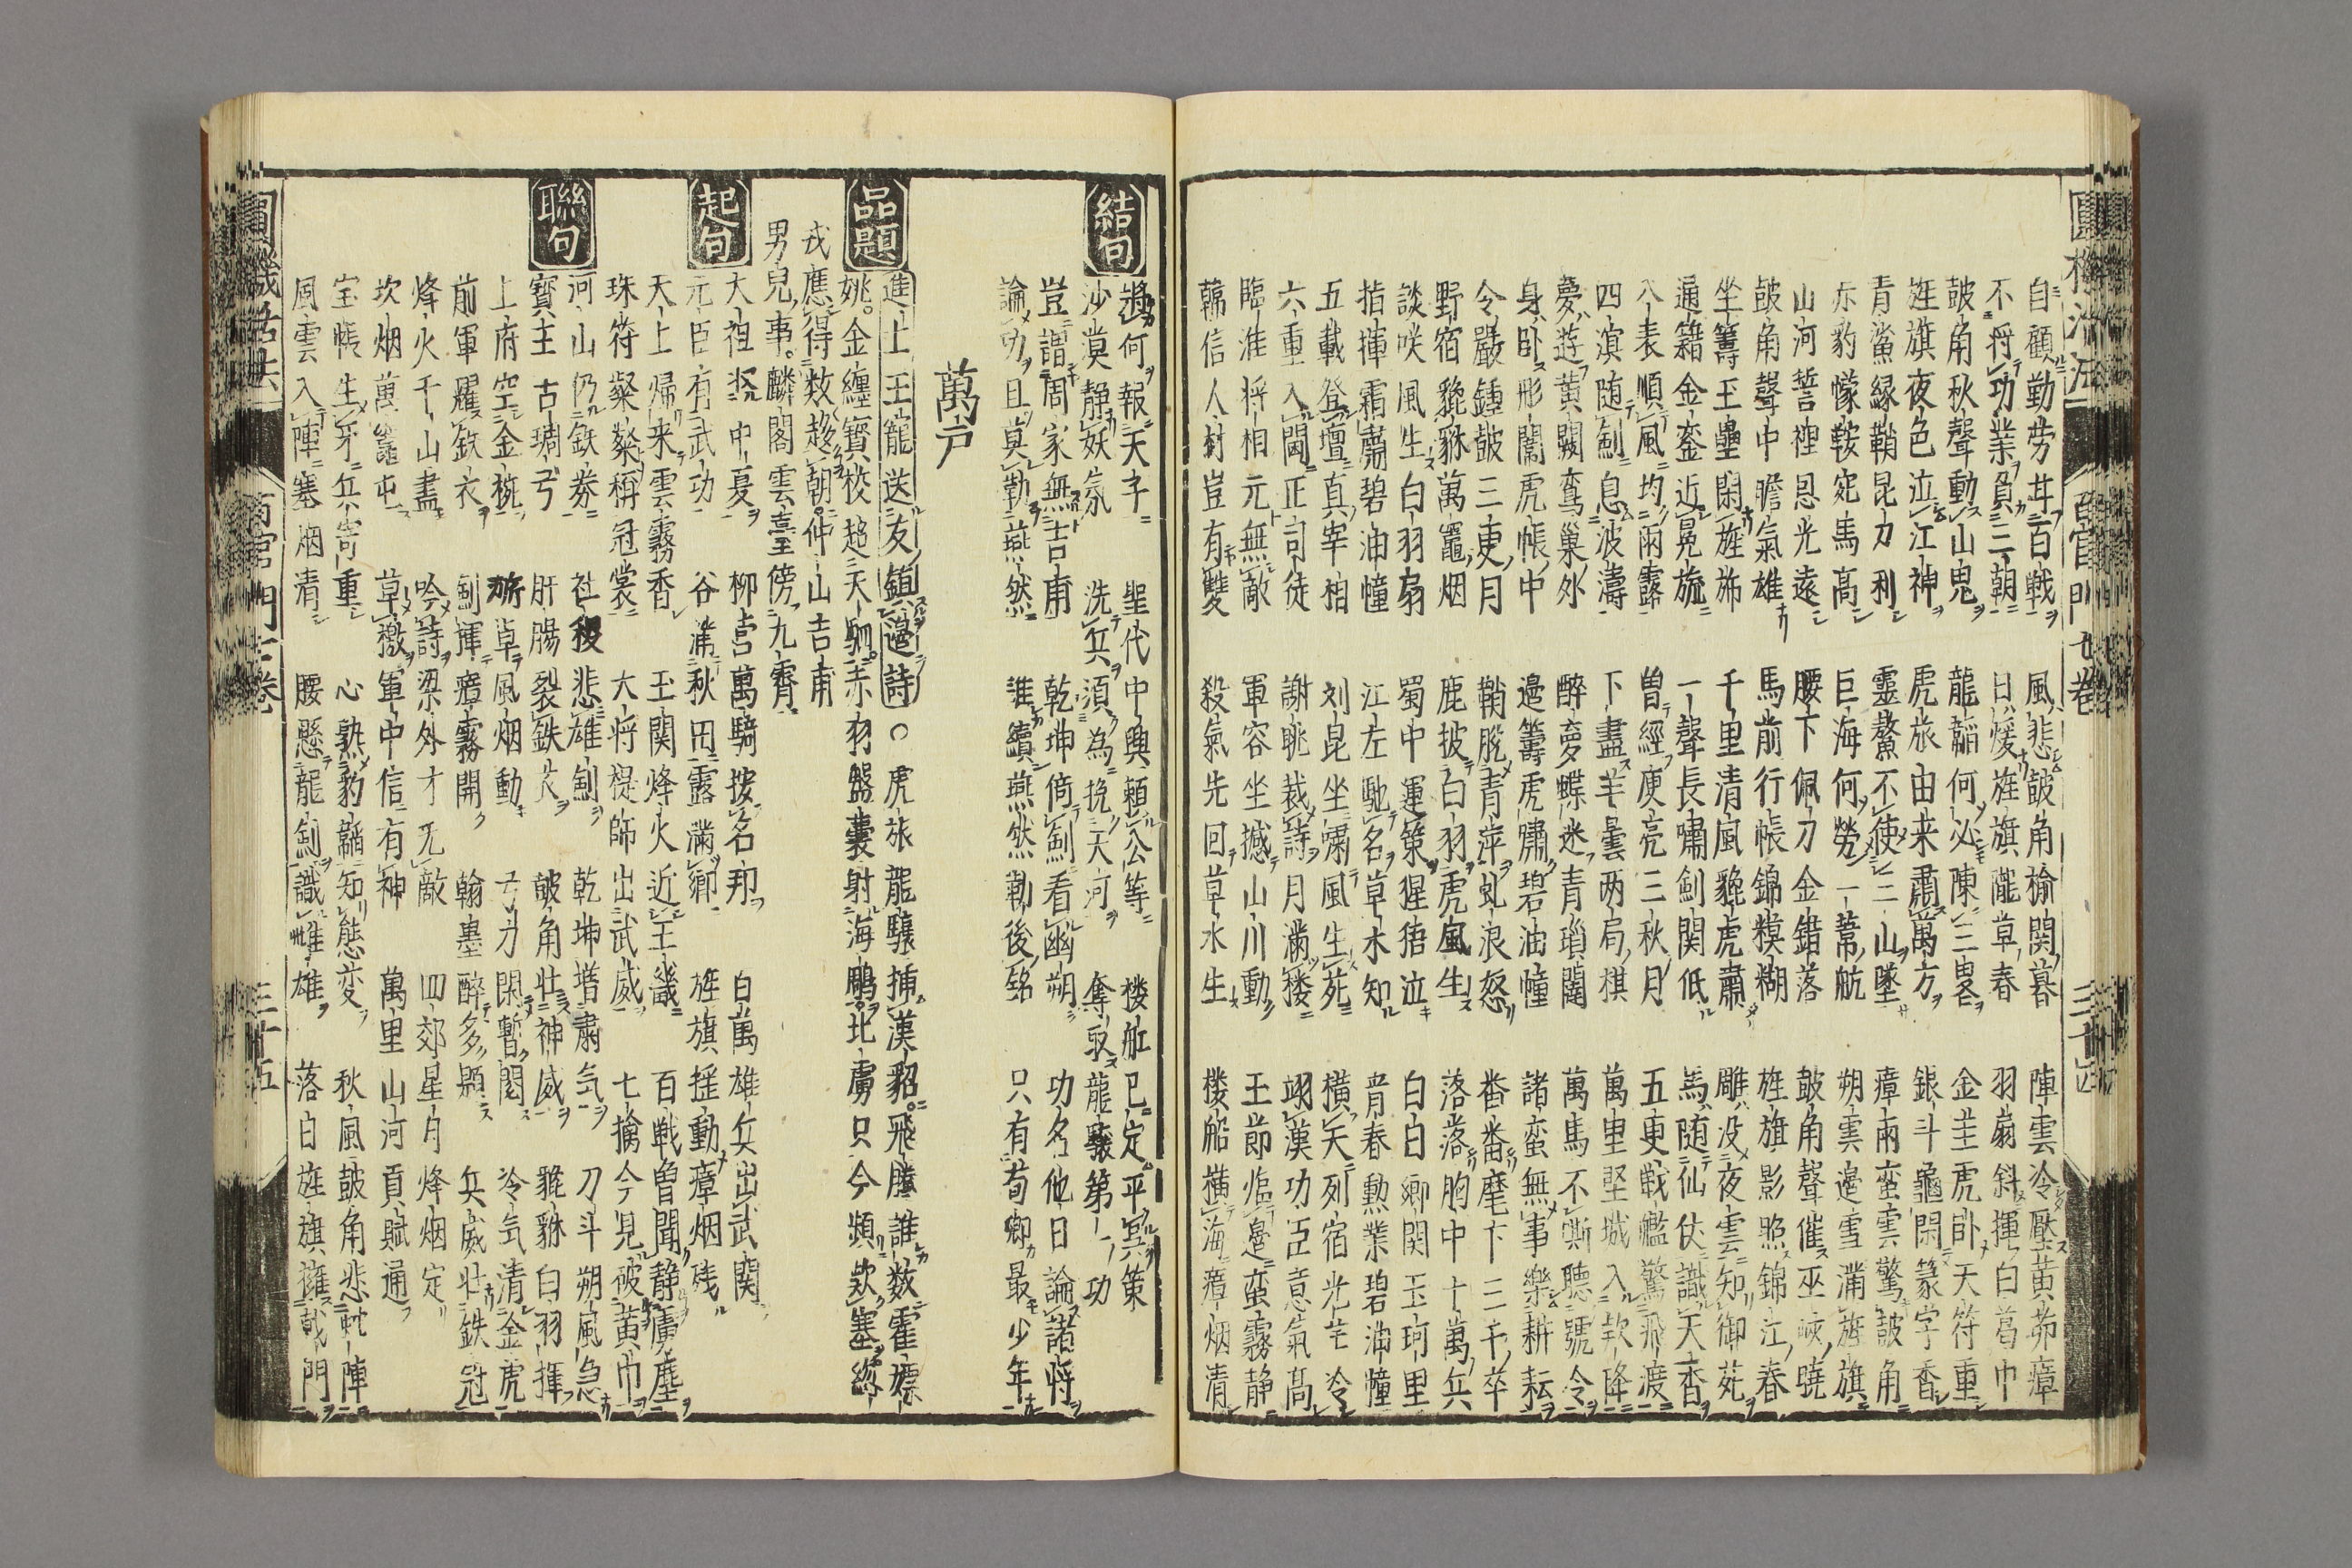 自顧勤劳甘百戦 風悲皷角榆関暮 陣雲冷壓黄茅瘴
不将功業負三朝 日煖旌旗隴草春 羽扇斜揮白葛巾
皷角秋聲動山鬼 龍韜何必陳三畧 金圭虎卧天符重
旌旗夜色泣江神 虎旅由来粛萬方 銀斗龜閑篆字香
青鯊緑鞘昆刀利 靈鰲不使三山墜 瘴雨蛮雲驚皷角
赤豹幪鞍宛馬高 巨海何勞一葦航 朔雲邊雪満旌旗
山河誓裡恩光遠 腰下佩刀金錯落 皷角聲催巫峡曉
皷角聲中膽氣雄 馬前行帳錦糢糊 旌旗影照錦江春
坐籌玉壘閑旌斾 千里清風貔虎粛 雕没夜雲知御苑
通籍金銮近冕旒 一聲長嘯劍関低 馬随仙仗識天香
八表順風均雨露 曽經庾亮三秋月 五更戦艦驚飛渡
四溟随劍息波濤 下盡羊曇两局棋 萬里堅城入欵降
夢遊黄閣鸞巢外 醉夢蝶迷青瑣闥 萬馬不嘶聽號令
身卧彤闈虎帳中 邉籌虎嘯碧油幢 諸蛮無事樂耕耘
令嚴鍾皷三更月 鞘脱青萍虬浪怒 番番麾下三千卒
野宿貔貅萬竈烟 鹿披白羽虎風生 落落胸中十萬兵
談咲風生白羽扇 蜀中運策猩猩泣 白白卿関玉珂里
指揮霜粛碧油幢 江左馳名草木知 青春勲業碧油幢
五載登壇真宰相 刘昆坐嘯風生苑 横天列宿光芒冷
六重入閫正司徒 謝眺裁詩月满楼 翊漢功臣意氣高
臨淮将相元無敵 軍容坐撼山川動 王節臨邉蛮霧静
韓信人材豈有雙 殺氣先回草水生 楼船横海瘴烟清
圓機活法 百官門七卷 三十四
結句
將何報天子 聖代中興頼公等 楼舡已定平冥策
沙漠静妖氛 洗兵須為挽天河 奪取龍驤第一功
豈謂周家無吉甫 乾坤倚劍看幽朔 功名他日論諸将
論功且莫勒燕然 誰續燕然勒後銘 只有荀卿最少年
萬戸
品題
進上王寵送友鎮邉詩○虎旅龍驤捕漢貂飛騰誰数霍嫖
姚金纏寶校超天駟赤羽盤囊射海鵰北虜只今頻欵塞緫
戎應得数趍朝仲山吉甫
男兒事麟閣雲臺傍九霄
起句
大袒 中憂 柳营萬騎按名邦 百萬雄兵出武関
元臣有武功 谷滿秋田露滿鄉 旌旗揺動瘴烟残
天上帰来雲霧香 玉関烽火近王畿 百戦曽聞静虜塵
珠符粲粲稱冠裳 大将禔師出武威 七擒今見破黄巾
聯句
河山仍鉄券 社稷悲雄劍 乾坤増粛気 刀斗朔風急
寶主古琱弓 肝腸裂鉄衣 皷角壮神威 貔貅白羽揮
上府空金椀 斾卓風烟動 弓刀閑暫閣 冷気清金虎
前軍躍鉄衣 劍揮瘴霧開 翰墨醉多題 兵威壮鉄冠
烽火千山盡 吟詩梁外才无敵 四郊星月烽烟定
坎烟萬竈屯 草檄軍中信有神 萬里山河貢賦通
宝帳生牙兵寄重 心熟豹韜知態変 秋風皷角悲虵陣
風雲入陣塞烟清 腰懸龍劍識雌雄 落日旌旗擁戟門
圓機活法 百官門七卷 三十五